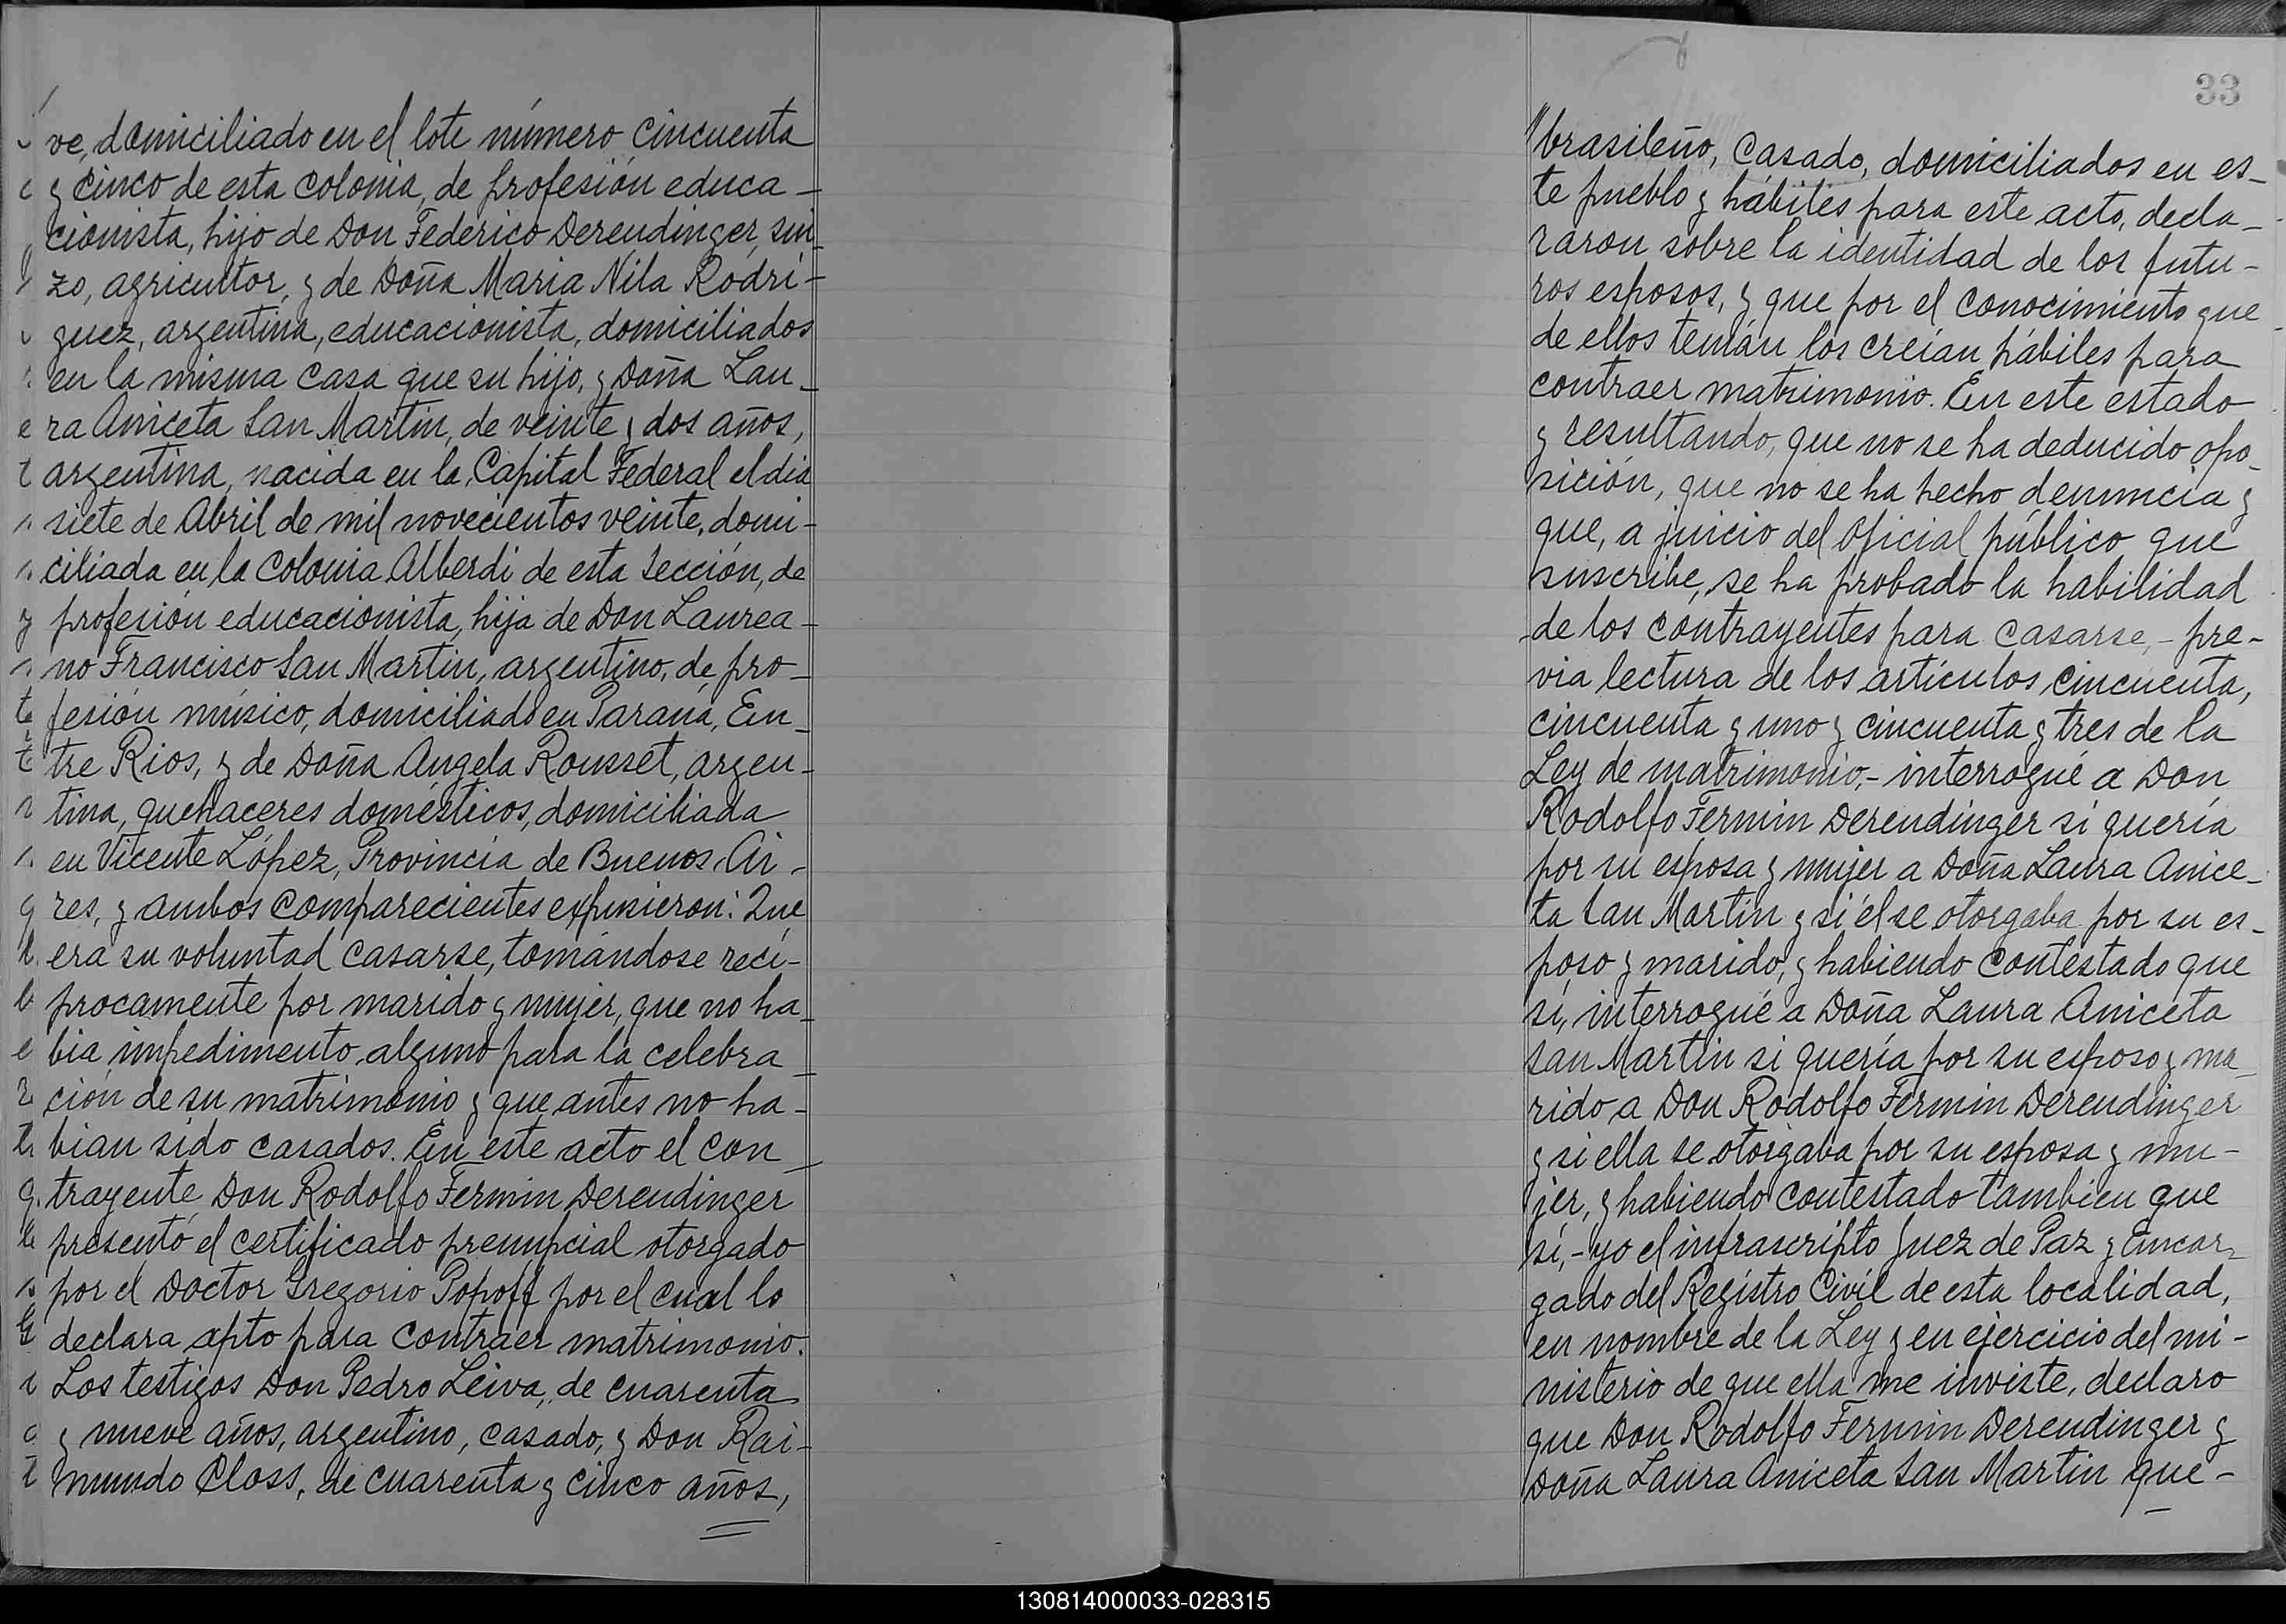 ve, domiciliado en el lote número cincuenta
y cinco de esta colonia, de profesión educa-
cionista, hijo de Don Federico Derendinger, sui-
zo, agricultor, y de Doña Maria Nila Rodri-
guez, argentina, educacionista, domiciliados
en la misma casa que su hijo, y Doña Lau-
ra Aniceta San Martin, de veinte y dos años,
argentina, nacida en la Capital Federal el dia
siete de Abril de mil novecientos veinte, domi-
ciliada en la Colonia Alberdi de esta Sección, de
profesión educacionista, hija de Don Laurea-
no Francisco San Martin, argentino, de pro-
fesión músico, domiciliado en Paraná, En-
tre Rios, y de Doña Angela Rousset, argen-
tina, quehaceres domésticos, domiciliada
en Vicente López, Provincia de Buenos Ai-
res, y ambos comparecientes expusieron: Que
era su voluntad casarse, tomándose recí-
procamente por marido y mujer, que no ha-
bia impedimento alguno para la celebra-
ción de su matrimonio y que antes no ha-
bian sido casados. En este acto el con-
trayente Don Rodolfo Fermin Derendinger
presentó el certificado prenupcial otorgado
por el Doctor Gregorio Popoff por el cual lo
declara apto para contraer matrimonio.
Los testigos Don Pedro Leiva, de cuarenta
y nueve años, argentino, casado, y Don Rai-
mundo Closs, de cuarenta y cinco años,
33
brasileño, casado, domiciliados en es-
te pueblo y hábiles para este acto, decla-
raron sobre la identidad de los futu-
ros esposos, y que por el conocimiento que
de ellos tenían los creían hábiles para
contraer matrimonio. En este estado
y resultando, que no se ha deducido opo-
sición, que no se ha hecho denuncia y
que, a juicio del oficial público que
suscribe, se ha probado la habilidad
de los contrayentes para casarse,- pre-
via lectura de los artículos cincuenta,
cincuenta y uno y cincuenta y tres de la
Ley de matrimonio,- interrogué a Don
Rodolfo Fermin Derendinger si quería
por su esposa y mujer a Doña Laura Anice-
ta San Martin y si él se otorgaba por su es-
poso y marido, y habiendo contestado que
sí, interrogué a Doña Laura Aniceta
San Martin si quería por su esposo y ma-
rido a Don Rodolfo Fermin Derendinger
y si ella se otorgaba por su esposa y mu-
jer, y habiendo contestado tambien que
sí,- yo el infrascripto Juez de Paz y Encar-
gado del Registro Civil de esta localidad,
en nombre de la Ley y en ejercicio del mi-
nisterio de que ella me inviste, declaro
que Don Rodolfo Fermin Derendinger y
Doña Laura Aniceta San Martin que-
130814000033-028315